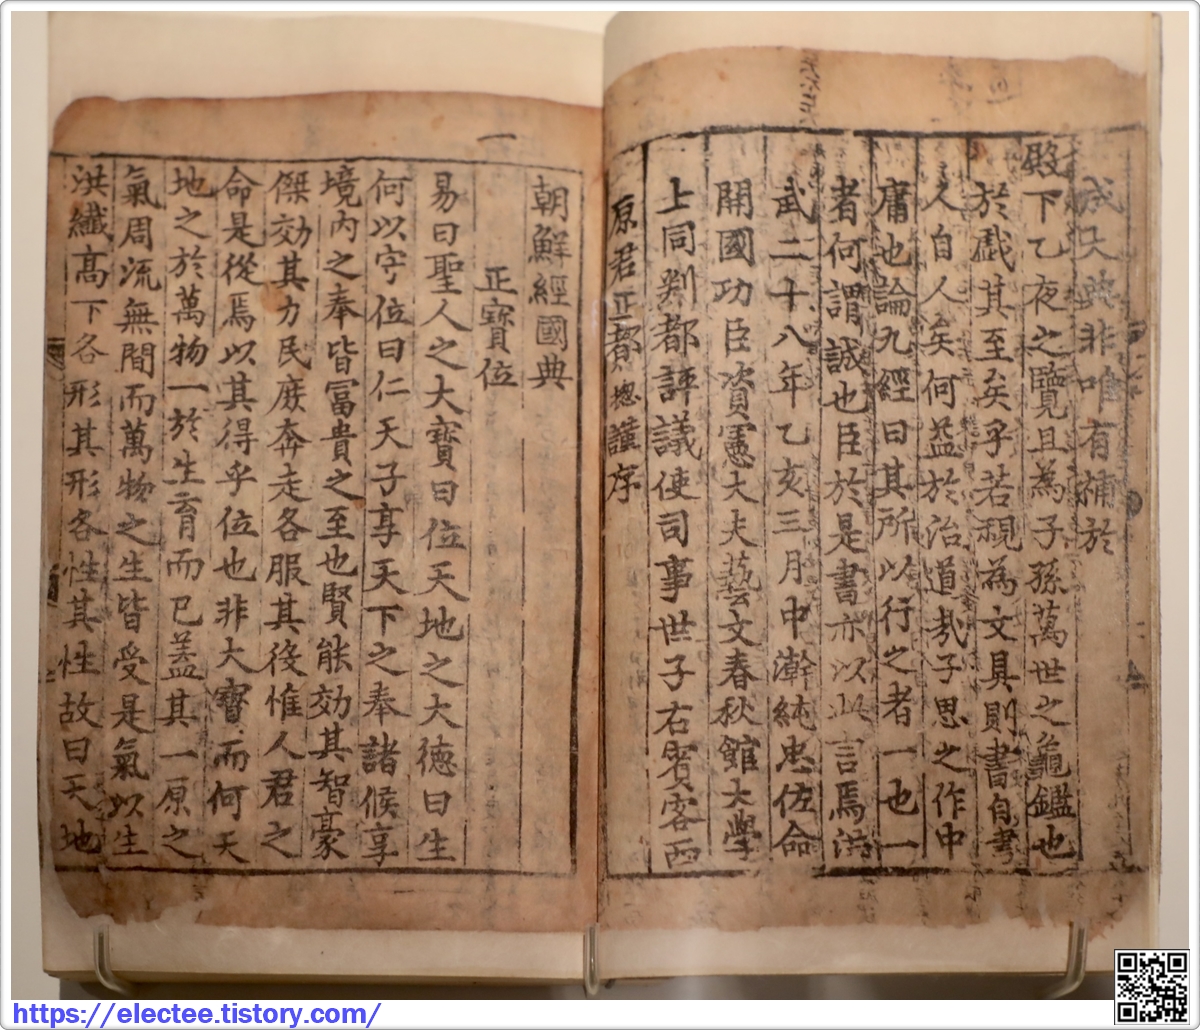 成大典非唯有補於
殿下乙夜之覽且為子孫萬世之龜鑑也
於戲其至矣乎若視為文具則書自書
人自人矣何益於治道㢤子思之作中
庸也論九經曰其所以行之者一也一
者何謂誠也臣於是書亦以此言焉洪
武二十八年乙亥三月中澣純忠佐命
開國功臣資憲大夫藝文春秋館大學
上同判都評議使司事世子右賓客西
原君鄭摠謹序
一
朝鮮經國典
正寶位
易曰聖人之大寶曰位天地之大德曰生
何以守位曰仁天子享天下之奉諸侯享
境內之奉皆冨貴之至也賢能効其智豪
傑効其力民庶奔走各服其役惟人君之
命是從焉以其得乎位也非大寶而何天
地之於萬物一於生育而已蓋其一原之
氣周流無間而萬物之生皆受是氣以生
洪纖髙下各形其形各性其性故曰天地
https://electee.tistory.com/